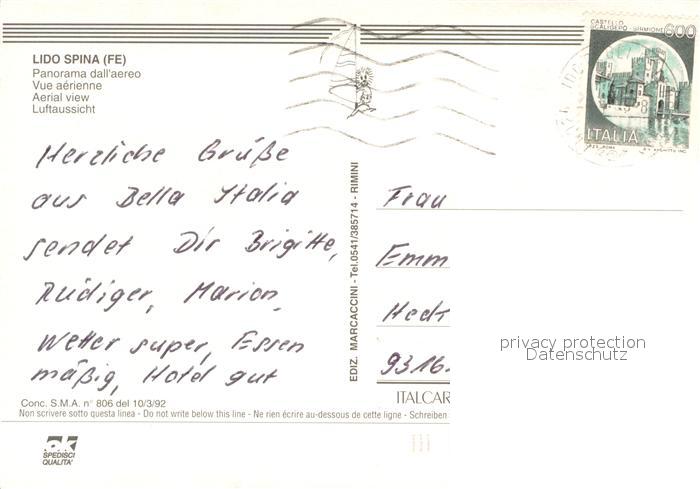 CASTELLO
SCALIGERO - SIRMIONE
600
ITALIA
LIDO SPINA (FE)
Panorama dall'aereo
Vue aérienne
Aerial view
Luftaussicht
Herzliche Grüße
aus Bella Italia
sendet Dir Brigitte,
Rüdiger, Marion,
Wetter super, Essen
mäßig, Hotel gut
EDIZ. MARCACCINI - Tel.0541/385714 - RIMINI
Frau
Emm
Heck
9316.
privacy protection
Datenschutz
ITALCAR
Conc. S.M.A. n° 806 del 10/3/92
Non scrivere sotto questa linea - Do not write below this line - Ne rien écrire au-dessous de cette ligne - Schreiben
SPEDISCI
QUALITA'